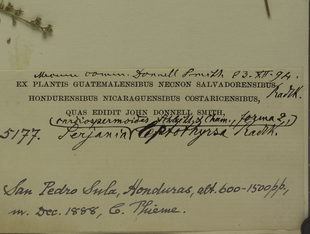 comm. Donnell Smith 23.XII.94.
EX PLANTIS GUATEMALENSIBUS NECNON SALVADORENSIBUS,
HONDURENSIBUS NICARAGUENSIBUS COSTARICENSIBUS, Radlk.
QUAS EDIDIT JOHN DONNELL SMITH.
(cardiospermoides Schldl. & Cham., forma 2,)
5177. Serjania leptothyrsa Radlk.
San Pedro Sula, Honduras, alt. 600-1500 pp,
m. Dec. 1888, C. Thieme.